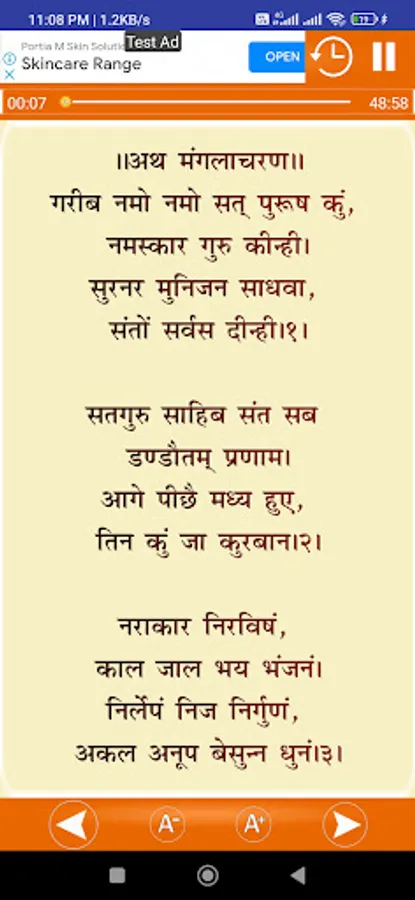 11:08 PM | 1.2KB/s
Test Ad
Skincare Range
OPEN
00:07
48:58
।।अथ मंगलाचरण।।
गरीब नमो नमो सत् पुरूष कुं,
नमस्कार गुरु कीन्ही।
सुरनर मुनिजन साधवा,
संतों सर्वस दीन्ही।१।
सतगुरु साहिब संत सब
डण्डौतम् प्रणाम।
आगे पीछै मध्य हुए,
तिन कुं जा कुरबान।२।
नराकार निरविषं,
काल जाल भय भंजनं।
निर्लेपं निज निर्गुणं,
अकल अनूप बेसुन्न धुनं।३।
A-
A+